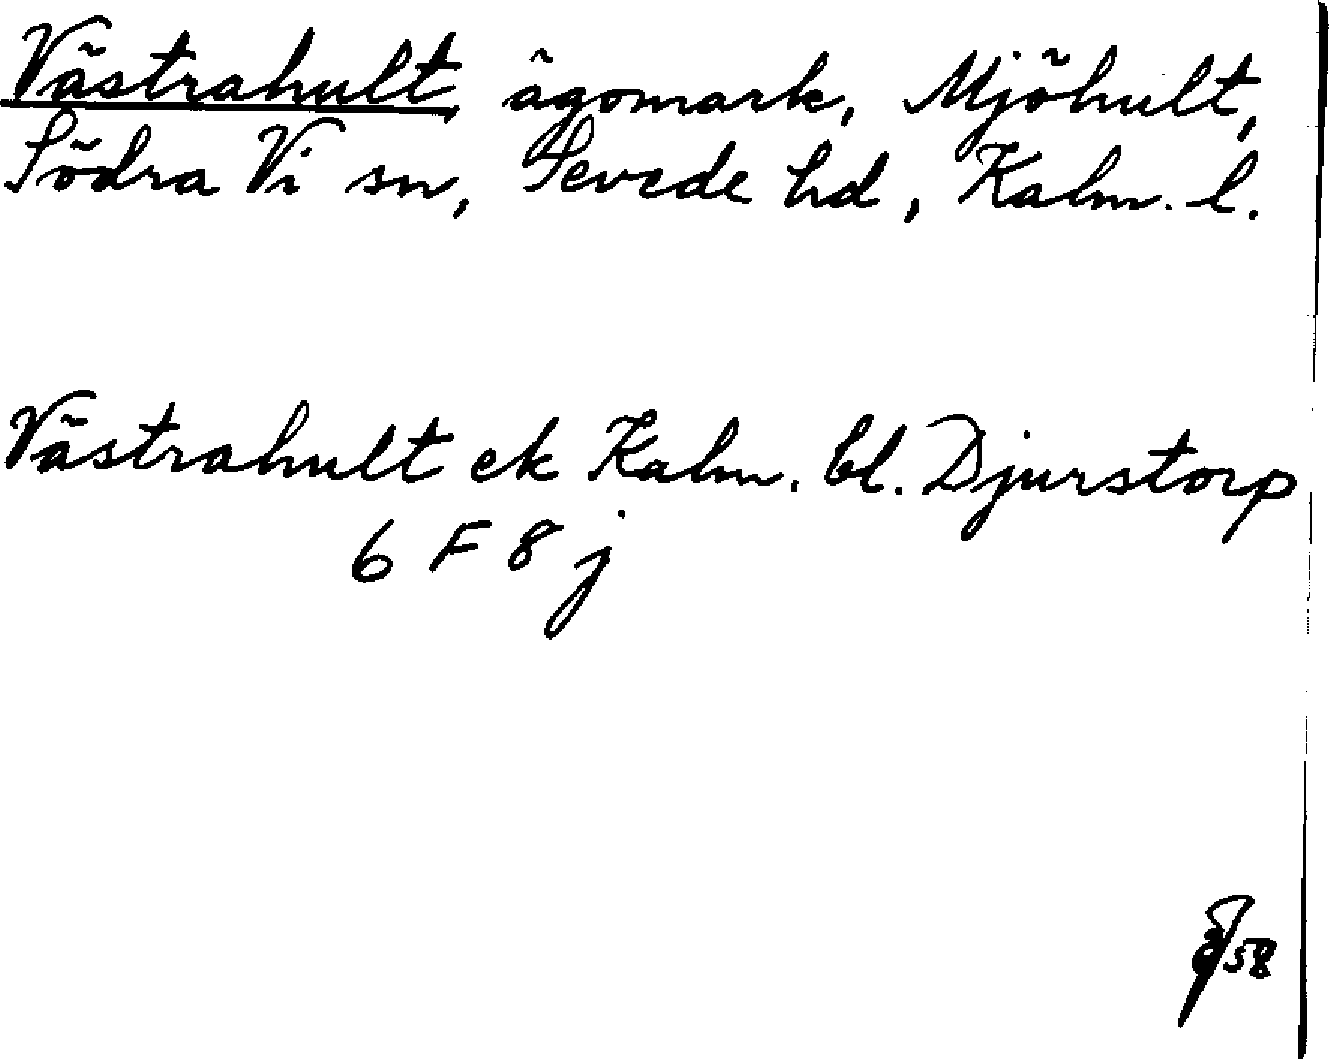 Västrahult, ägomark, Mjöhult,
Södra Vi sn, Sevede hd, Kalm. l.
Västrahult ek Kalm. bl. Djurstorp
6 F 8 j
58